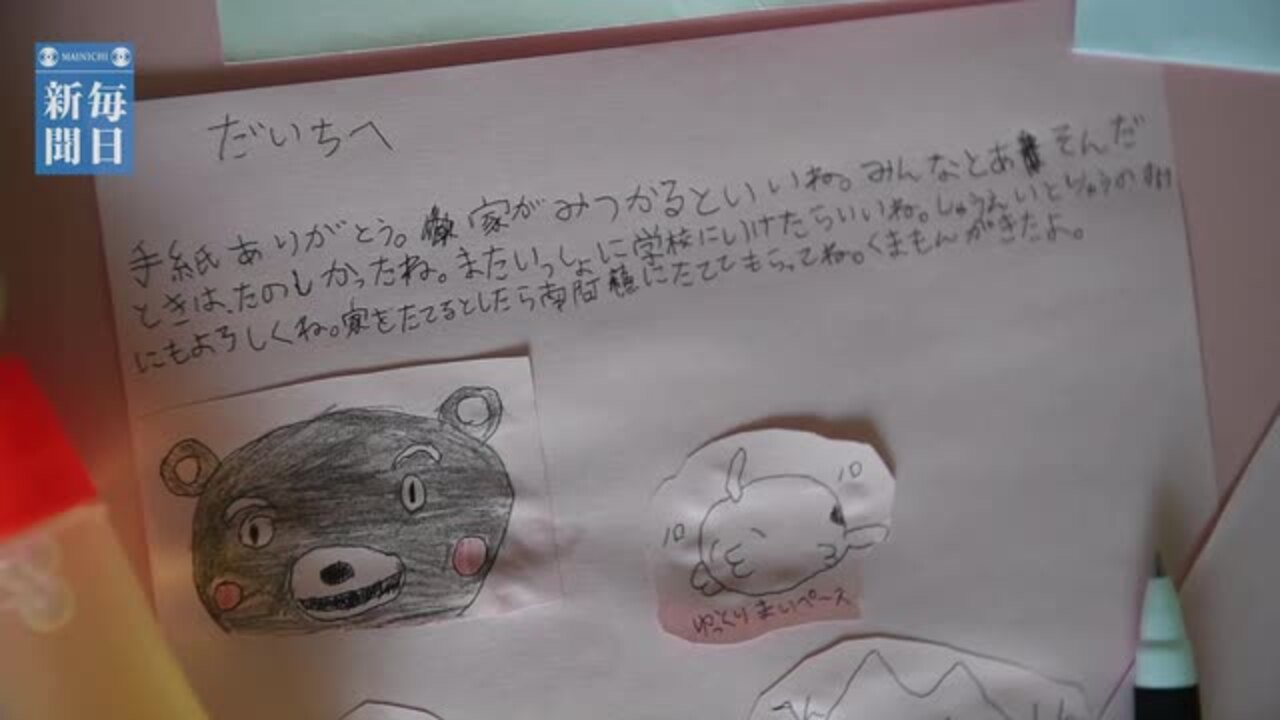 MAINICHI
毎日
新聞
だいちへ
手紙ありがとう。家がみつかるといいね。みんなとあそんだ
ときは、たのしかったね。またいっしょに学校にいけたらいいね。しゅうえいとりゅうの
にもよろしくね。家をたてるとしたら南阿蘇にたててもらってね。くまもんがきたよ。
10
10
ゆっくりまいペース